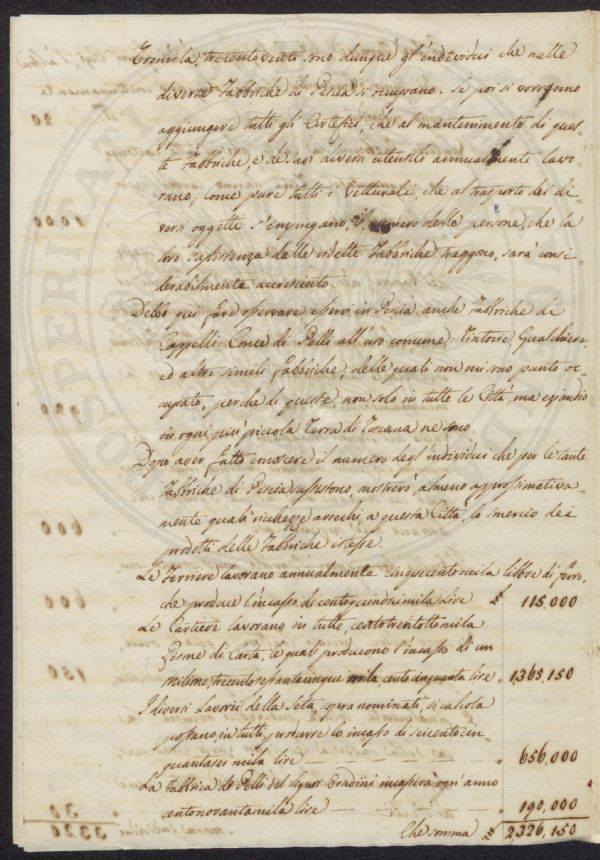 Tremila, trecentoventi sono dunque gl'individui che nelle
diverse Fabbriche di Pescia si occupano. Se poi si vorranno
aggiungere tutti gli Artefici, che al mantenimento di ques-
te Fabbriche, e de' suoi diversi utensili annualmente lavo-
rano, come pure tutti i Vetturali, che al trasporto dei di-
versi oggetti s'impiegano, il numero delle persone, che la
loro sussistenza dalle ridette Fabbriche traggono, sarà consi-
derabilmente accresciuto.
Debbo qui fare osservare esservi in Pescia anche Fabbriche di
Cappelli: Conce di Pelli all'uso comune: Tintorie, Gualchiere,
ed altre simili Fabbriche; delle quali non mi sono punto oc-
cupato, perchè di queste non solo in tutte le Città, ma eziandio
in ogni più piccola Terra di Toscana ne sono.
Dopo aver fatto conoscere il numero degl'individui che per le tante
Fabbriche di Pescia sussistono, mostrerò, almeno approssimativa-
mente quali ricchezze arrechi, a questa Città, lo smercio dei
prodotti delle Fabbriche istesse.
Le Ferriere lavorano annualmente cinquecentomila libbre di ferro,
che produce l'incasso di centoquindici mila Lire £ 115,000
Le Cartiere lavorano in tutte, centotrentotto mila
Risme di Carta, le quali producono l'incasso di un
milione, trecentosessantacinque mila, cento cinquanta lire " 1,365,150
I diversi Lavori della Seta, sopra nominati, si calcola
possano, in tutti, produrre lo incasso di seicentocin-
quantasei mila lire " 656,000
La Fabbrica de Pelli del Signor incasserà ogni anno
centonovantamila lire " 190,000
Che somma £ 2,326,150